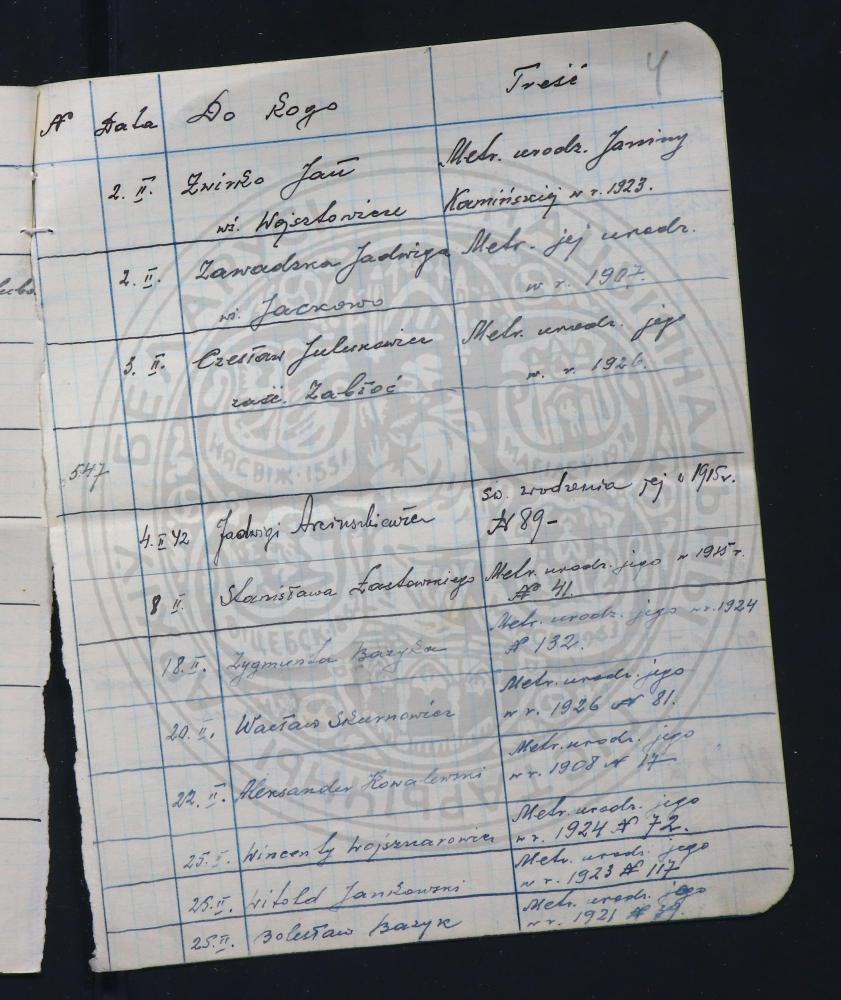 4
№ Data Do kogo Treść
2. II. Żwirko Jan Metr. urodz. Janiny
wś. Wojsztowicze Kamińskiej w r. 1923.
2. II. Zawadzka Jadwiga Metr. jej urodz.
wś. Jackowo w r. 1907.
3. II. Czesław Metr. urodz. jego
zaśc. Zabłoć w r. 1926.
547
św. urodzenia jej w 1915r.
4. II 42 Jadwigi № 89-
8 II. Stanisława Metr. urodz. jego w 1915 r.
№ 41.
18. II. Zygmunta Bazyka Metr. urodz. jego w r. 1924
№ 132.
20. II. Wacław Skurnowicz Metr. urodz. jego
w r. 1926 № 81.
22. II. Aleksander Kowalewski Metr. urodz. jego
w r. 1908 № 17
25. II. Wincenty Wojsznarowicz Metr. urodz. jego
w r. 1924 № 72.
25. II. Witold Jankowski Metr. urodz. jego
w r. 1923 № 117
25. II. Bolesław Bazyk Metr. urodz. jego
w r. 1921 №
НЯСВІЖ·1551